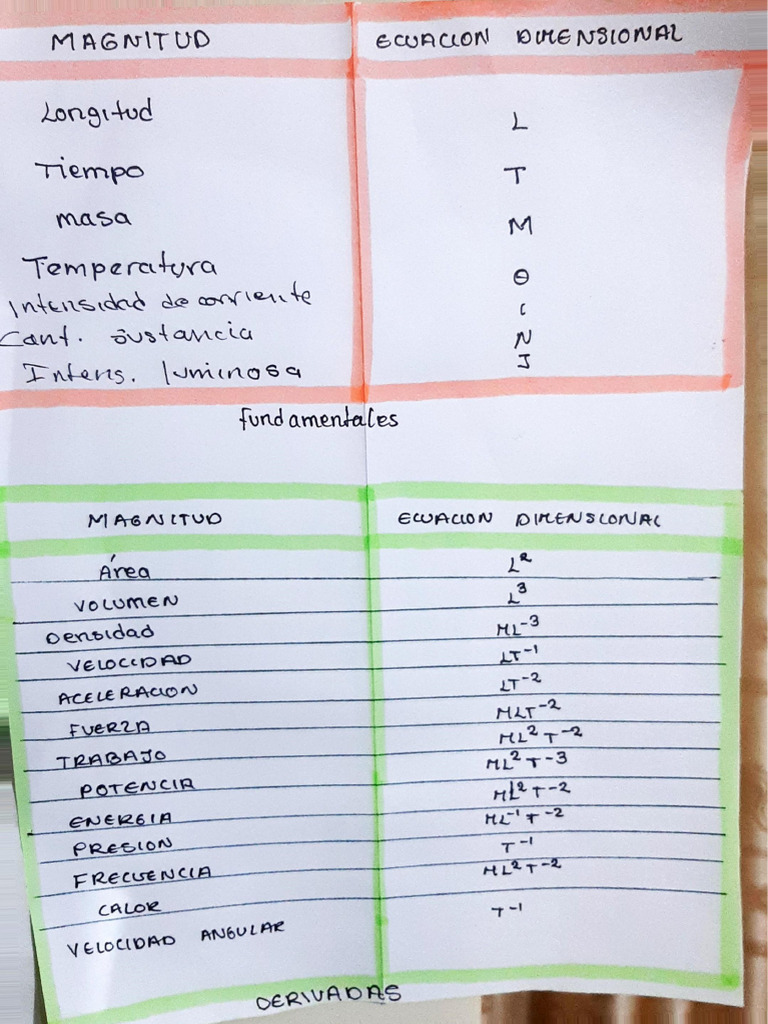 MAGNITUD ECUACION DIMENSIONAL
Longitud L
Tiempo T
masa M
Temperatura θ
Intensidad de corriente I
Cant. sustancia N
Intens. luminosa J
fundamentales
MAGNITUD ECUACION DIMENSIONAL
Área L²
VOLUMEN L³
Densidad ML⁻³
VELOCIDAD LT⁻¹
ACELERACION LT⁻²
FUERZA MLT⁻²
TRABAJO ML²T⁻²
POTENCIA ML²T⁻³
ENERGIA ML²T⁻²
PRESION ML⁻¹T⁻²
FRECUENCIA T⁻¹
CALOR ML²T⁻²
VELOCIDAD ANGULAR T⁻¹
DERIVADAS